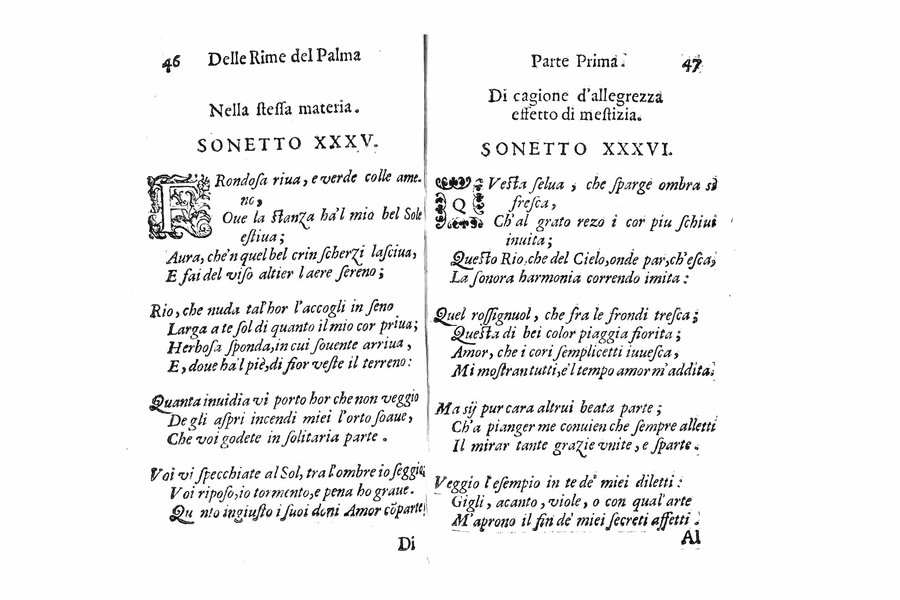 46 Delle Rime del Palma
Nella ſteſſa materia.
SONETTO XXXV.
FRondoſa riua, e verde colle ame-
no,
Oue la ſtanza ha'l mio bel Sole
eſtiua;
Aura, che'n quel bel crin ſcherzi laſciua,
E fai del viſo altier l'aere ſereno;
Rio, che nuda tal'hor l'accogli in ſeno
Larga a te ſol di quanto il mio cor priua;
Herboſa ſponda, in cui ſouente arriua,
E, doue ha'l piè, di fior veſte il terreno:
Quanta inuidia vi porto hor che non veggio
De gli aſpri incendi miei l'orto ſoaue,
Che voi godete in ſolitaria parte.
Voi vi ſpecchiate al Sol, tra l'ombre io ſeggio,
Voi ripoſo, io tormento, e pena ho graue.
Qu nto ingiuſto i ſuoi doni Amor cõparte!
Di
Parte Prima. 47
Di cagione d'allegrezza
effetto di meſtizia.
SONETTO XXXVI.
QVeſta ſelua, che ſparge ombra sì
freſca,
Ch'al grato rezo i cor piu ſchiui
inuita;
Queſto Rio, che del Cielo, onde par, ch'eſca,
La ſonora harmonia correndo imita:
Quel roſſignuol, che fra le frondi treſca;
Queſta di bei color piaggia fiorita;
Amor, che i cori ſemplicetti inueſca,
Mi moſtran tutti, e'l tempo amor m'addita.
Ma sij pur cara altrui beata parte;
Ch'a pianger me conuien che ſempre alletti
Il mirar tante grazie vnite, e ſparte.
Veggio l'eſempio in te de' miei diletti:
Gigli, acanto, viole, o con qual'arte
M'aprono il fin de' miei ſecreti affetti.
Al